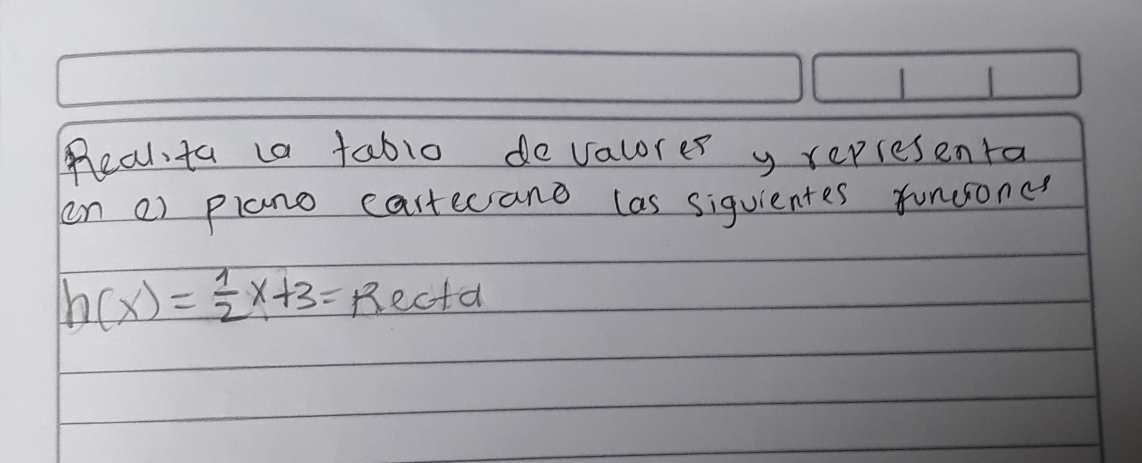 Realiza la tabla de valores y representa
en el plano cartesiano las siguientes funciones
h(x) = 1/2 x + 3 = Recta